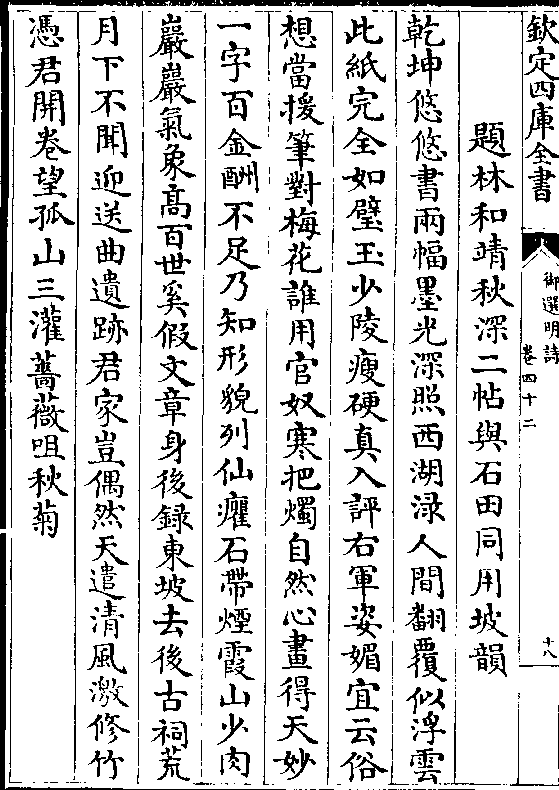 欽定四庫全書
御選明詩
卷四十二
十八
題林和靖秋深二帖與石田同用坡韻
乾坤悠悠書兩幅墨光深照西湖渌人間翻覆似浮雲
此紙完全如璧玉少陵瘦硬真入評右軍姿媚宜云俗
想當援筆對梅花誰用官奴寒把燭自然心畫得天妙
一字百金酬不足乃知形貌列仙癯石帶煙霞山少肉
巖巖氣象高百世奚假文章身後録東坡去後古祠荒
月下不聞迎送曲遺跡君家豈偶然天遣清風激修竹
憑君開卷望孤山三灌薔薇咀秋菊